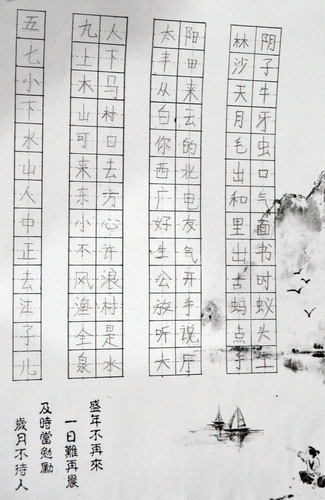 阴子牛牙虫口气面书时蚁头
林沙天月毛出和里出古蚂点
阳田来云的北电友气开手说厅
太丰从白你西广好生公放听大
人下马村日去方心许浪村是水
九土木山可来东小不风渔全泉
五七小下水山人中正去子儿
盛年不再來
一日難再晨
及時當勉勵
歲月不待人